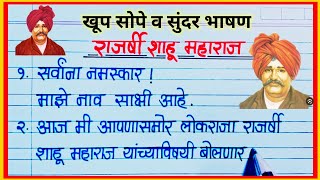 खूप सोपे व सुंदर भाषण
राजर्षी शाहू महाराज
१. सर्वांना नमस्कार !
माझे नाव साक्षी आहे.
२. आज मी आपणासमोर लोकराजा राजर्षी
शाहू महाराज यांच्याविषयी बोलणार